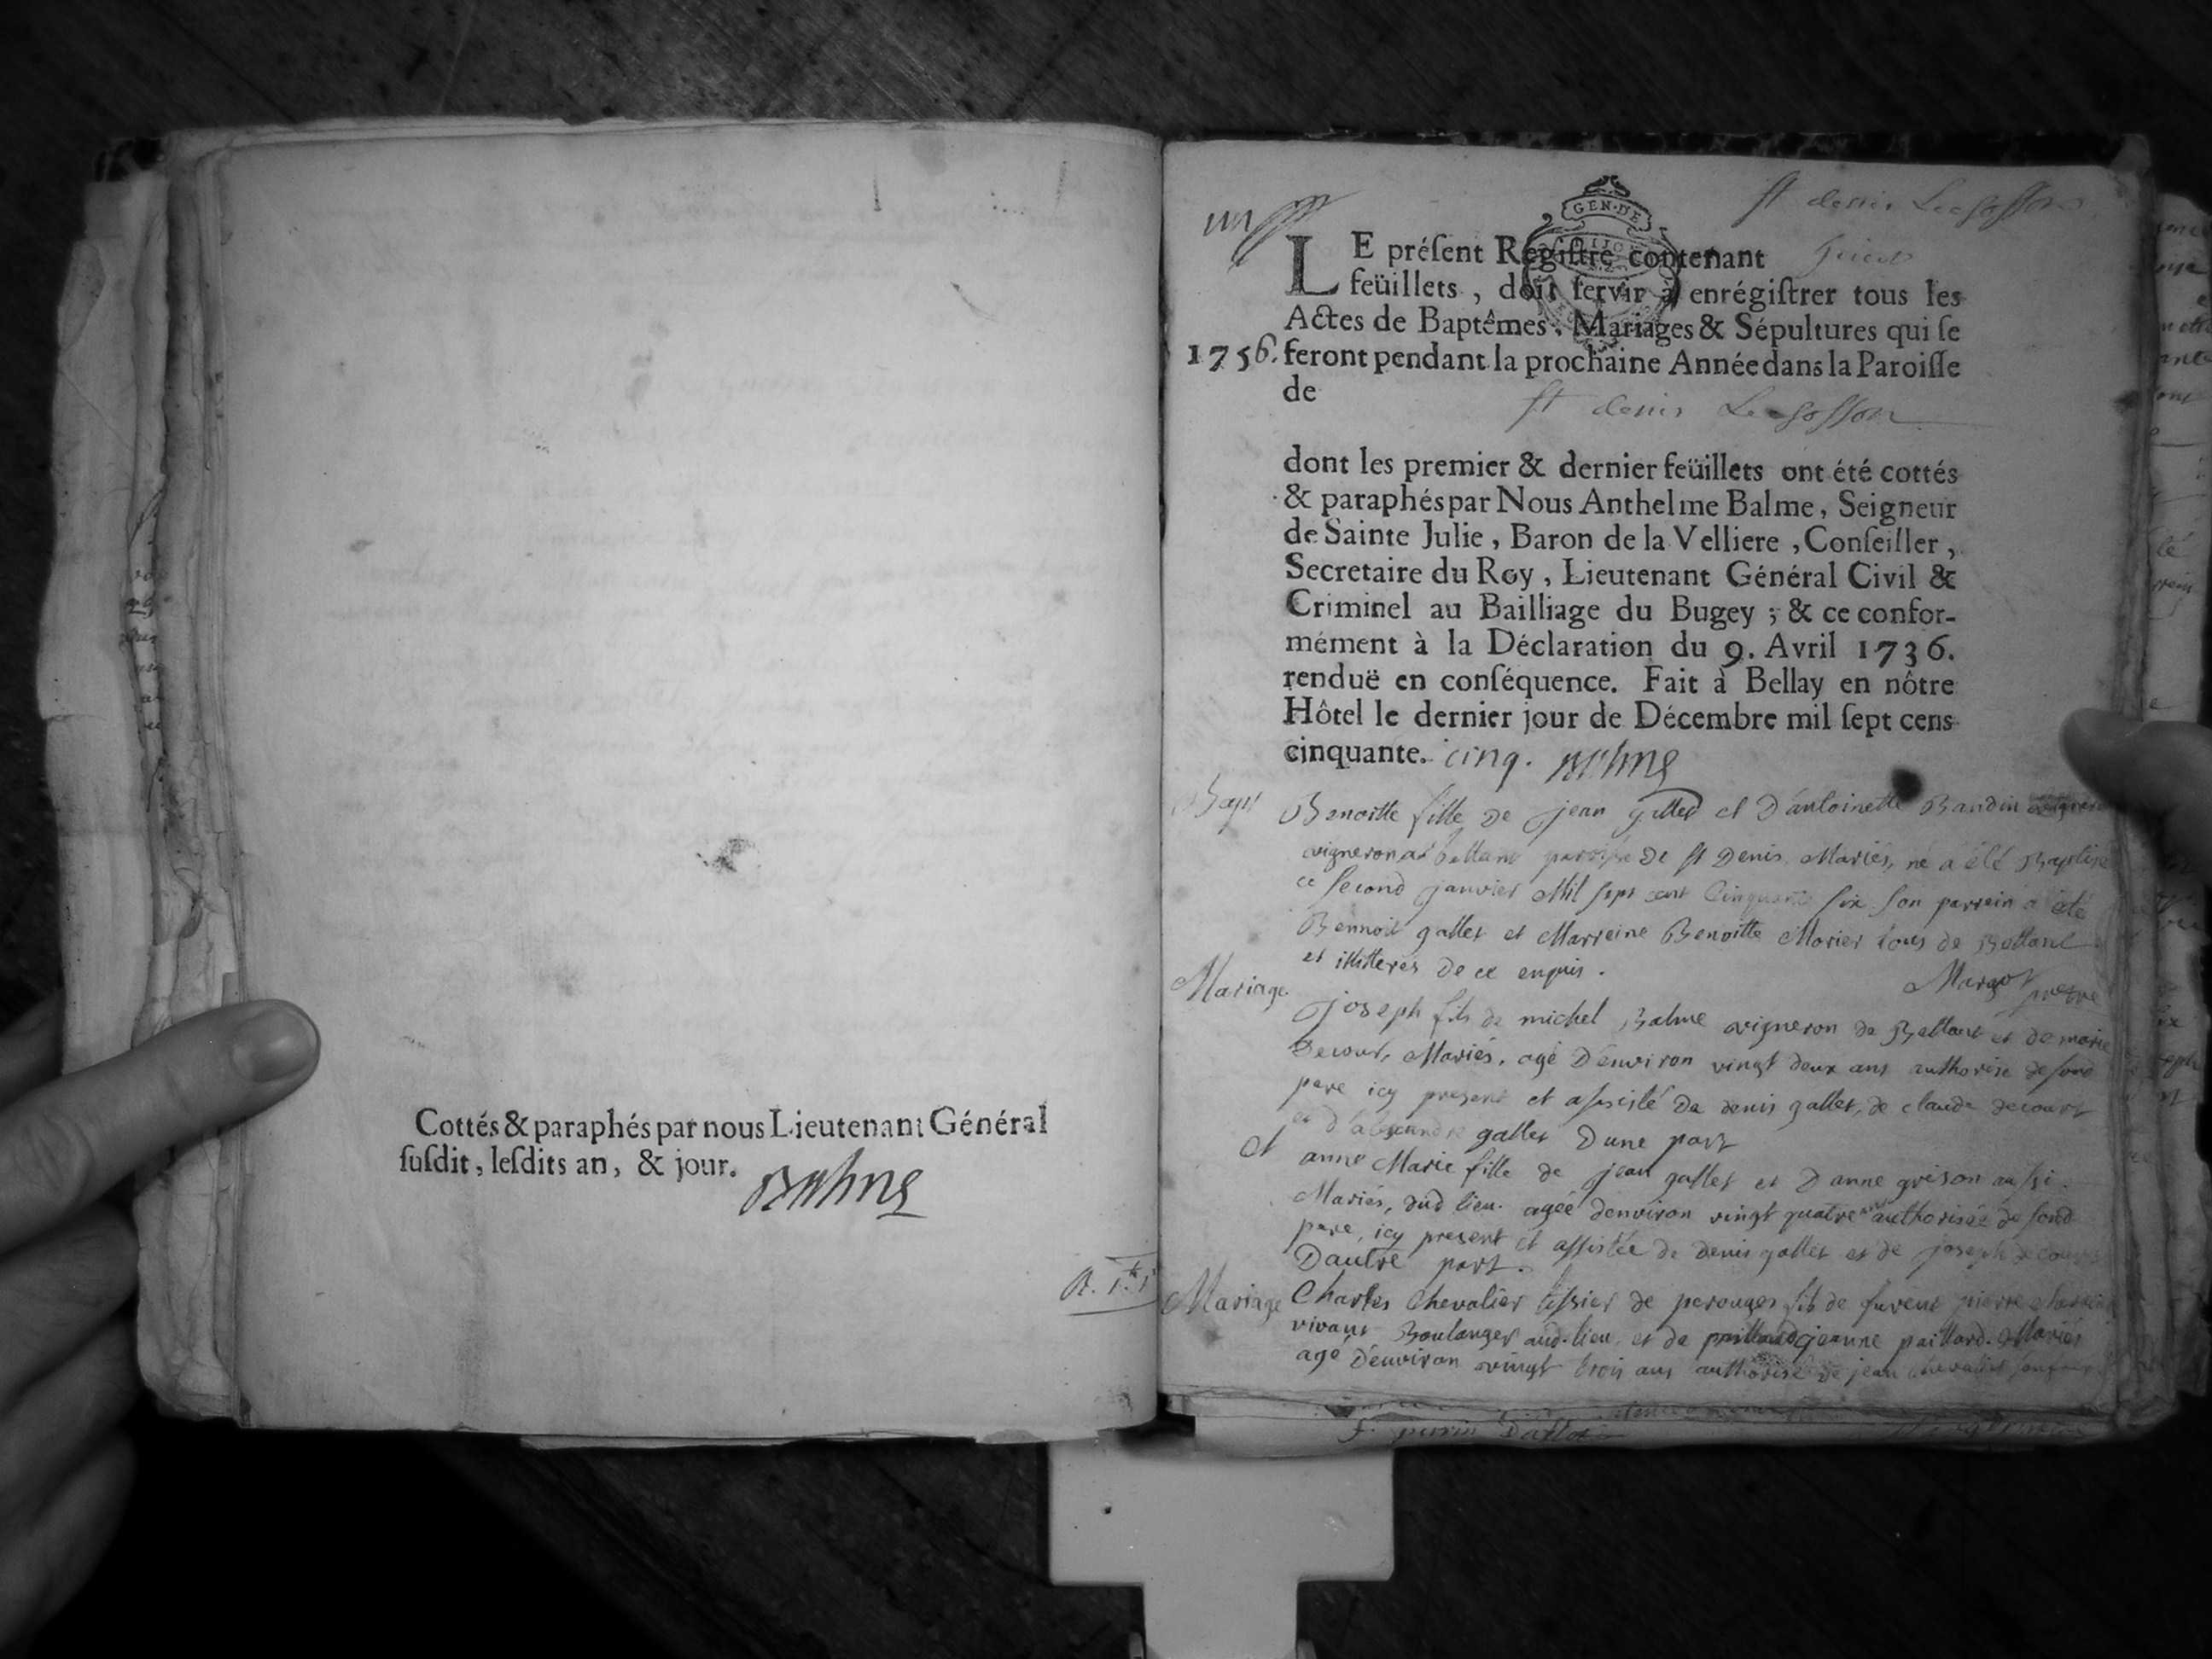 Cottés & paraphés par nous Lieutenant Général
ſuſdit, leſdits an, & jour. Balme
st denis Le Chosson
GEN·DE
LE préſent Regiſtre contenant
feüillets, doit ſervir à enrégiſtrer tous les
Actes de Baptêmes, Mariages & Sépultures qui ſe
1756. feront pendant la prochaine Année dans la Paroiſſe
de
st denis Le Chosson
dont les premier & dernier feüillets ont été cottés
& paraphés par Nous Anthelme Balme, Seigneur
de Sainte Julie, Baron de la Velliere, Conſeiller,
Secretaire du Roy, Lieutenant Général Civil &
Criminel au Bailliage du Bugey ; & ce confor-
mément à la Déclaration du 9. Avril 1736.
renduë en conſéquence. Fait à Bellay en nôtre
Hôtel le dernier jour de Décembre mil ſept cens
cinquante. cinq. Balme
Bapt Benoitte fille de jean gallet et D'antoinette Baudin
vigneron a bettant paroisse De st Denis Mariés, né a élé Baptise
ce second janvier Mil sept cent Cinquante six son parrein a été
Bennoit gallet et Marreine Benoitte Morier tous de Bettant
et illitteres de ce enquis.
Margot pretre
Mariage joseph fils de michel Balme vigneron de Bettant et de marie
Decour, Mariés, agé D'environ vingt deux ans authorisé de sond
pere icy present et assisté De denis gallet, de claude decourt
et d'alexandre gallet D'une part
et anne Marie fille de jean gallet et D'anne grison aussi
Mariés, dud lieu. agée d'environ vingt quatre ans authorisée de sond
pere, icy present et assistée de denis gallet et de joseph decourt
D'autre part.
Mariage Charles Chevalier tissier de perouges fils de furent pierre
vivant Boulanger aud. lieu et de jeanne paillard. Mariés
agé D'environ vingt trois ans authorisé de jean chevalier